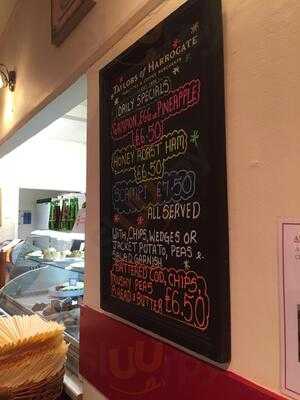 TAYLORS of HARROGATE
DAILY SPECIALS
GAMMON, EGG or PINEAPPLE
£6.50
HONEY ROAST HAM
£6.50
SCAMPI £7.50
ALL SERVED
WITH, CHIPS, WEDGES OR
JACKET POTATO, PEAS &
SALAD GARNISH
BATTERED COD, CHIPS,
MUSHY PEAS
BREAD & BUTTER £6.50